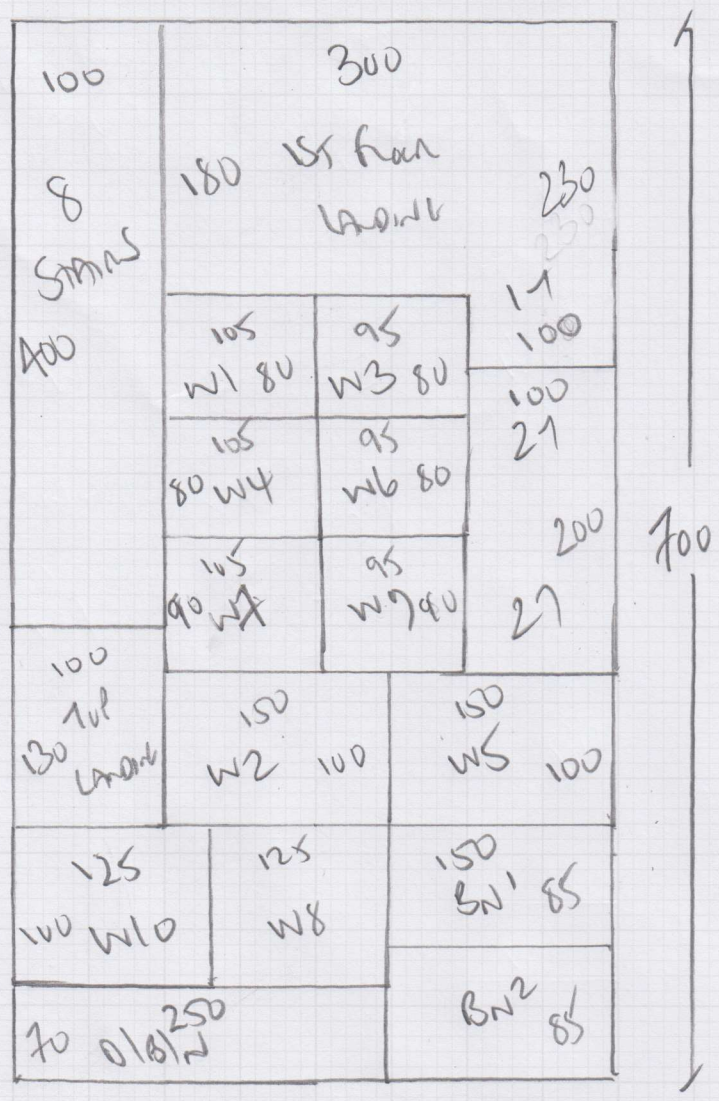 100
300
8
STAIRS
400
180 1st floor
LANDING
230
230
17
100
105
W1 80
95
W3 80
100
27
105
80 W4
95
W6 80
200
700
105
90 W7
95
W9 90
27
100
TOP
130 LANDING
150
W2 100
150
W5 100
125
100 W10
125
W8
150
BN1 85
250
70 D/B/N
BN2
85